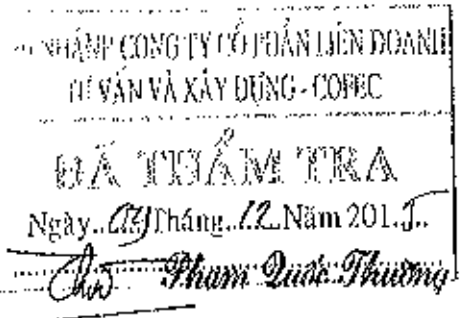 NHÁNH CÔNG TY CỔ PHẦN LIÊN DOANH
TƯ VẤN VÀ XÂY DỰNG - COFEC
ĐÃ THẨM TRA
Ngày.. Tháng..12..Năm 201..
Phạm Quốc Thường